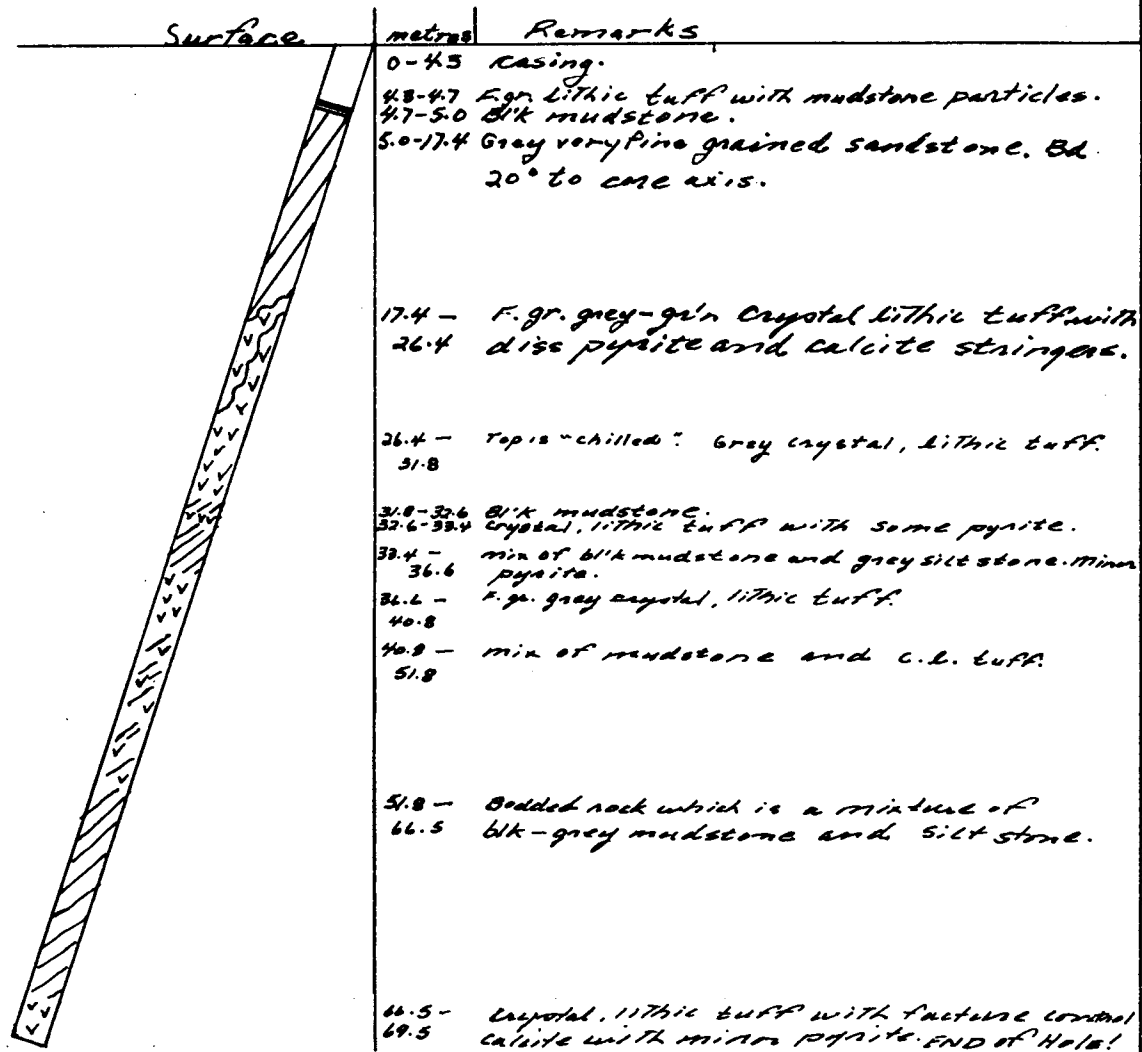 Surface metres Remarks
0-4.3 Casing.
4.3-4.7 F.gr. lithic tuff with mudstone particles.
4.7-5.0 Bl'k mudstone.
5.0-17.4 Grey very fine grained sandstone. Bd
20° to core axis.
17.4 - F.gr. grey-gr'n Crystal lithic tuff with
26.4 diss pyrite and calcite stringers.
26.4 - Top is "chilled". Grey crystal, lithic tuff.
31.8
31.8-32.6 Bl'k mudstone.
32.6-33.4 Crystal, lithic tuff with some pyrite.
33.4 - mix of bl'k mudstone and grey silt stone. Minor
36.6 pyrite.
36.6 - F.gr. grey crystal, lithic tuff.
40.8
40.8 - mix of mudstone and c.l. tuff.
51.8
51.8 - Bedded rock which is a mixture of
66.5 blk-grey mudstone and silt stone.
66.5 - Crystal, lithic tuff with facture control
69.5 calcite with minor pyrite. END of Hole!